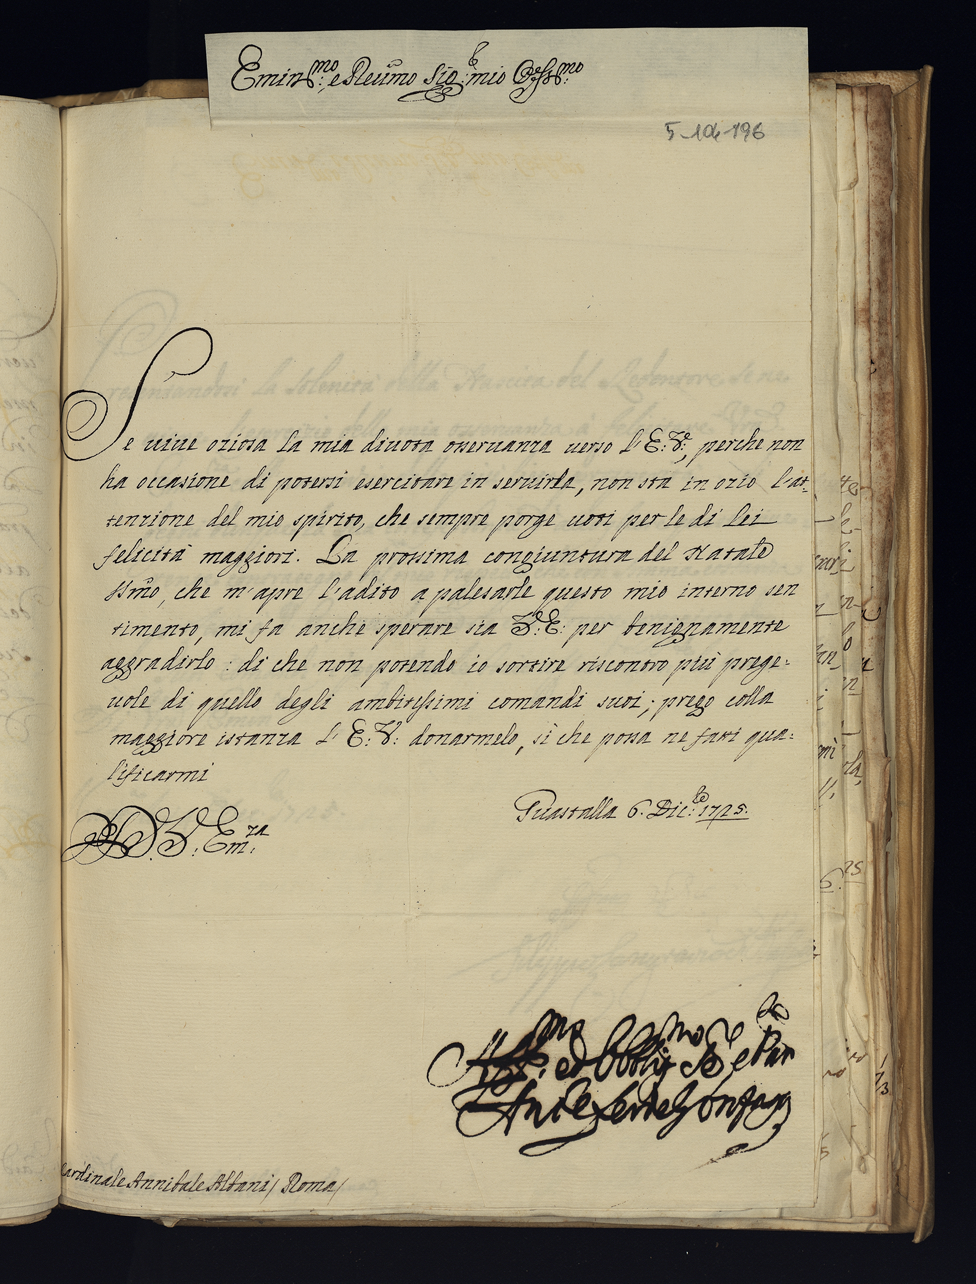 Emin.mo e Reu.mo Sig.r mio Oss.mo
5-104-196
Se uiue oziosa la mia diuota osseruanza uerso l'E: V:, perche non
ha occasione di potersi esercitare in seruirla, non sta in ozio l'at-
tenzione del mio spirito, che sempre porge uoti per le di lei
felicità maggiori. La prossima congiuntura del Natale
SSmo, che m'apre l'adito a palesarle questo mio interno sen
timento, mi fa anche sperare sia V: E: per benignamente
aggradirlo: di che non potendo io sortire riscontro più prege-
uole di quello degli ambitissimi comandi suoi; prego colla
maggiore istanza l'E: V: donarmelo, sì che possa ne fati qua-
lificarmi
Guastalla 6. Dic.e 1725.
D. V. Em.za
Aff.mo et Obblig.mo Se e Par
Ant Gonzaga
Cardinale Annibale Albani / Roma /